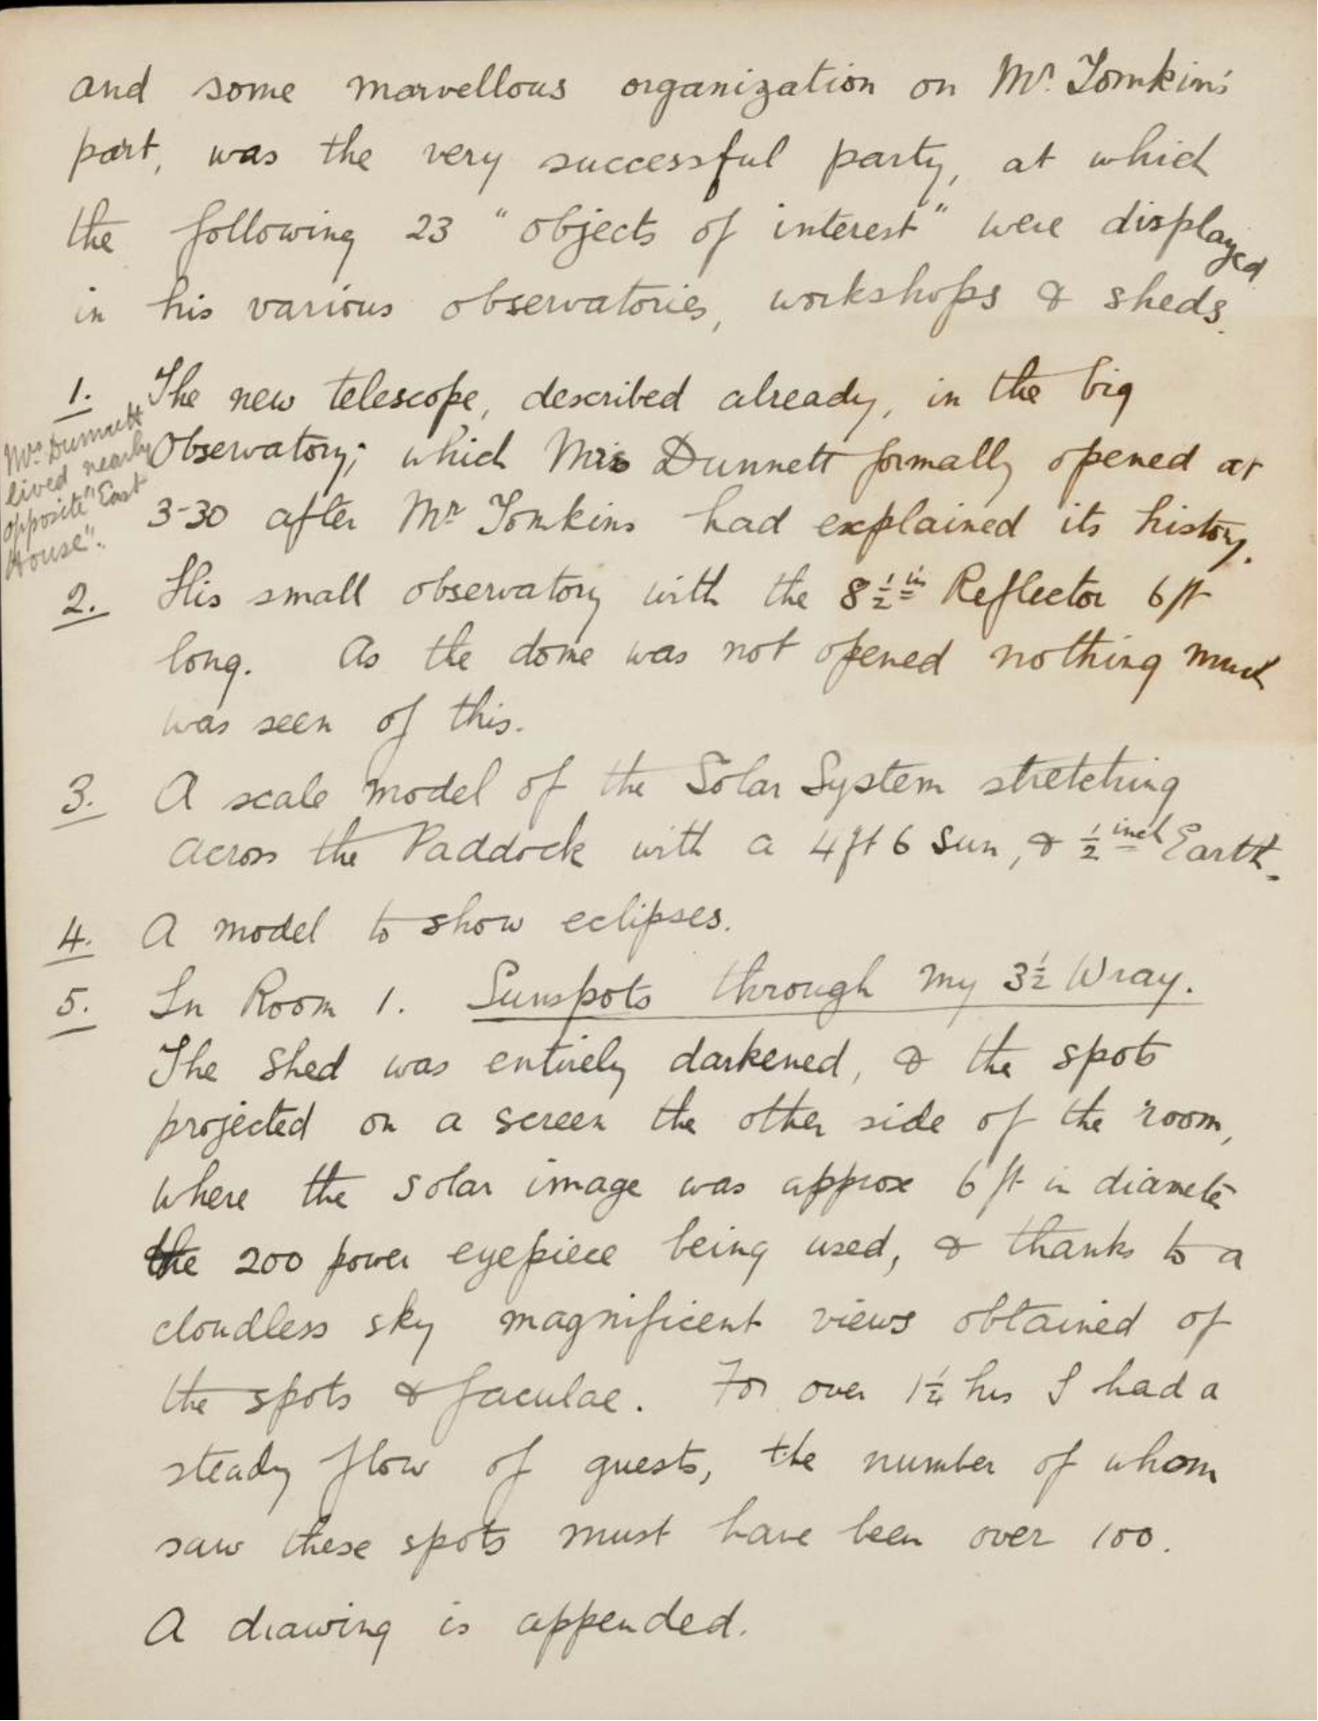 and some marvellous organization on Mr. Tomkins'
part, was the very successful party, at which
the following 23 "objects of interest" were displayed
in his various observatories, workshops & sheds.
1. The new telescope, described already, in the big
Observatory; which Mrs Dunnett formally opened at
3-30 after Mr Tomkins had explained its history.
Mrs Dunnett
lived nearby
opposite "East
House".
2. His small observatory with the 8½ in Reflector 6 ft
long. As the dome was not opened nothing much
was seen of this.
3. A scale model of the Solar System stretching
across the Paddock with a 4 ft 6 Sun, & ½ inch Earth.
4. A model to show eclipses.
5. In Room 1. Sunspots through my 3½ Wray.
The shed was entirely darkened, & the spots
projected on a screen the other side of the room,
where the solar image was approx 6 ft in diameter
the 200 power eyepiece being used, & thanks to a
cloudless sky magnificent views obtained of
the spots & faculae. For over 1¼ hrs I had a
steady flow of guests, the number of whom
saw these spots must have been over 100.
A drawing is appended.